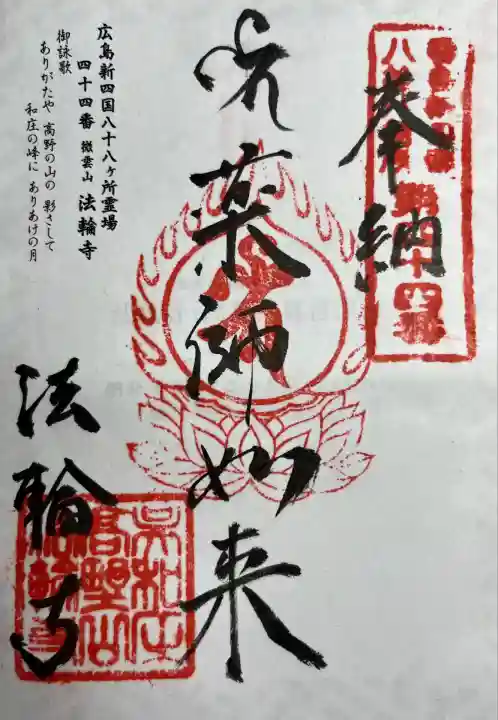 奉納
薬師如来
法輪寺
広島新四国八十八ヶ所霊場
四十四番 微雲山 法輪寺
御詠歌
ありがたや 高野の山の 影さして
和庄の峰に ありあけの月
呉和庄
高野山